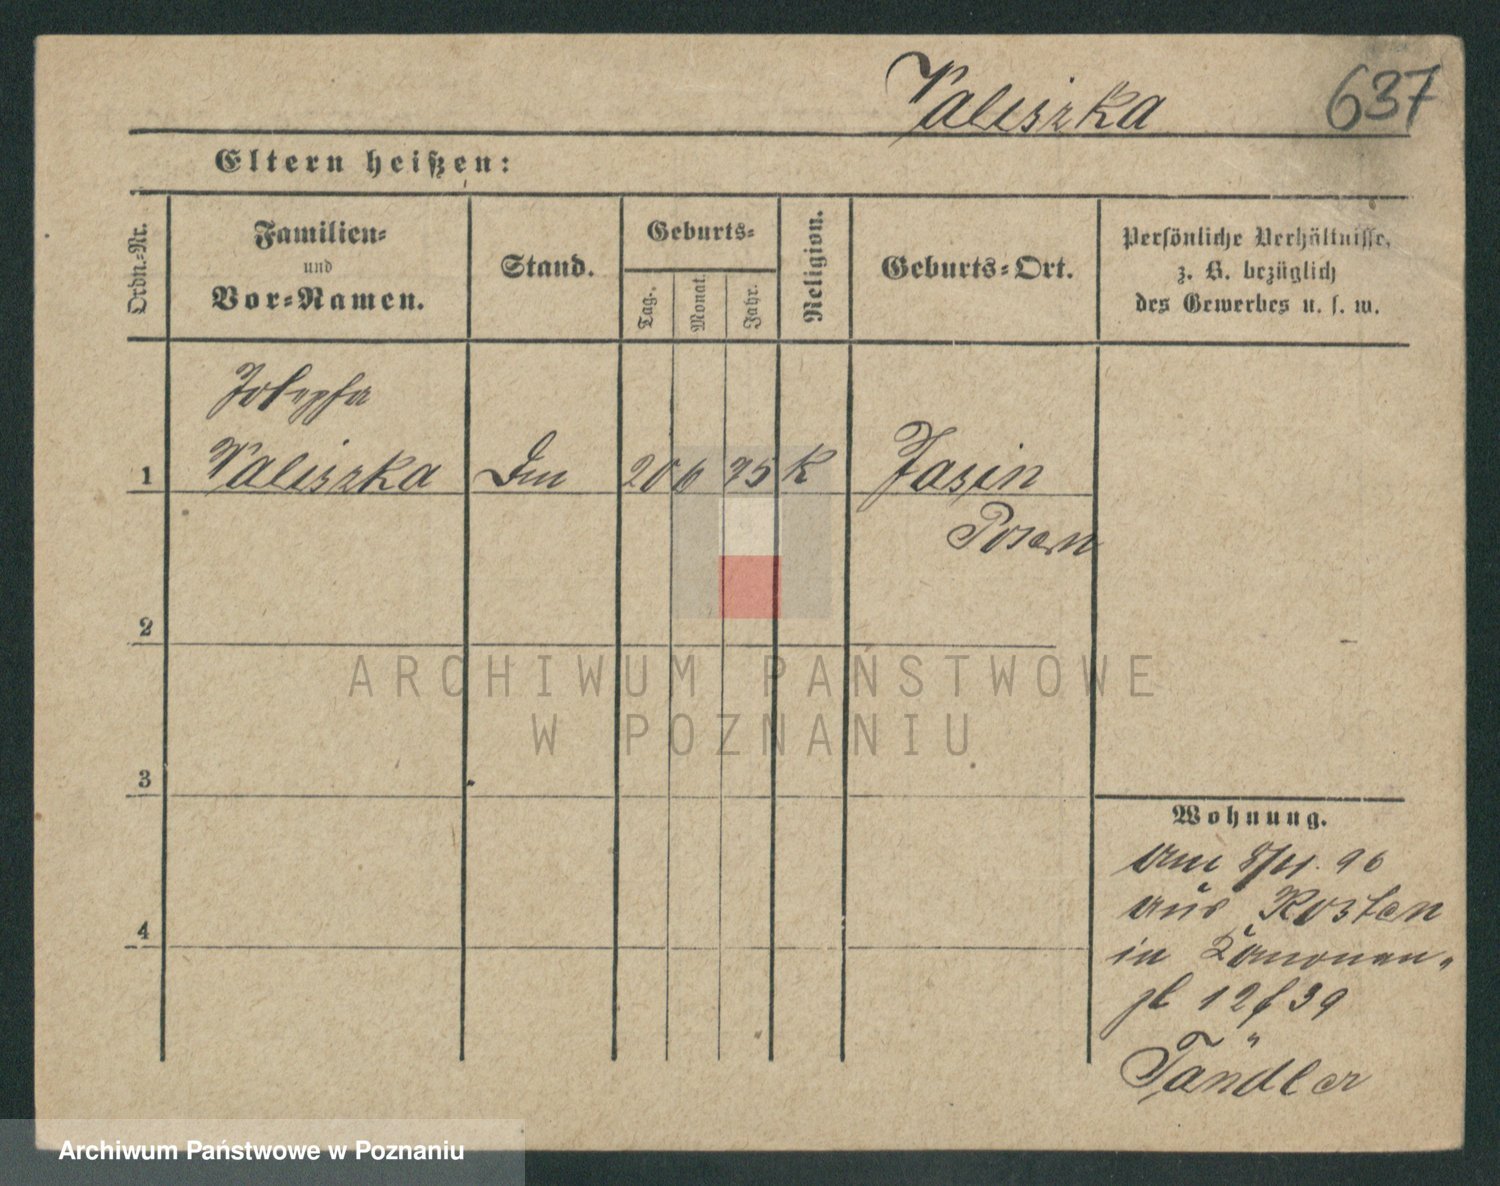 Valiszka 637
Eltern heißen:
Ordn.-Nr.
Familien-
und
Vor-Namen.
Stand.
Geburts-
Tag.
Monat.
Jahr.
Religion.
Geburts-Ort.
Persönliche Verhältnisse,
z. B. bezüglich
des Gewerbes u. s. w.
Josepha
1 Valiszka 20 6 75 K Jasin
Posen
2
ARCHIWUM PAŃSTWOWE
W POZNANIU
3
Wohnung.
am 8/11. 96
aus Kosten
in
4
12 f 39
Tändler
Archiwum Państwowe w Poznaniu